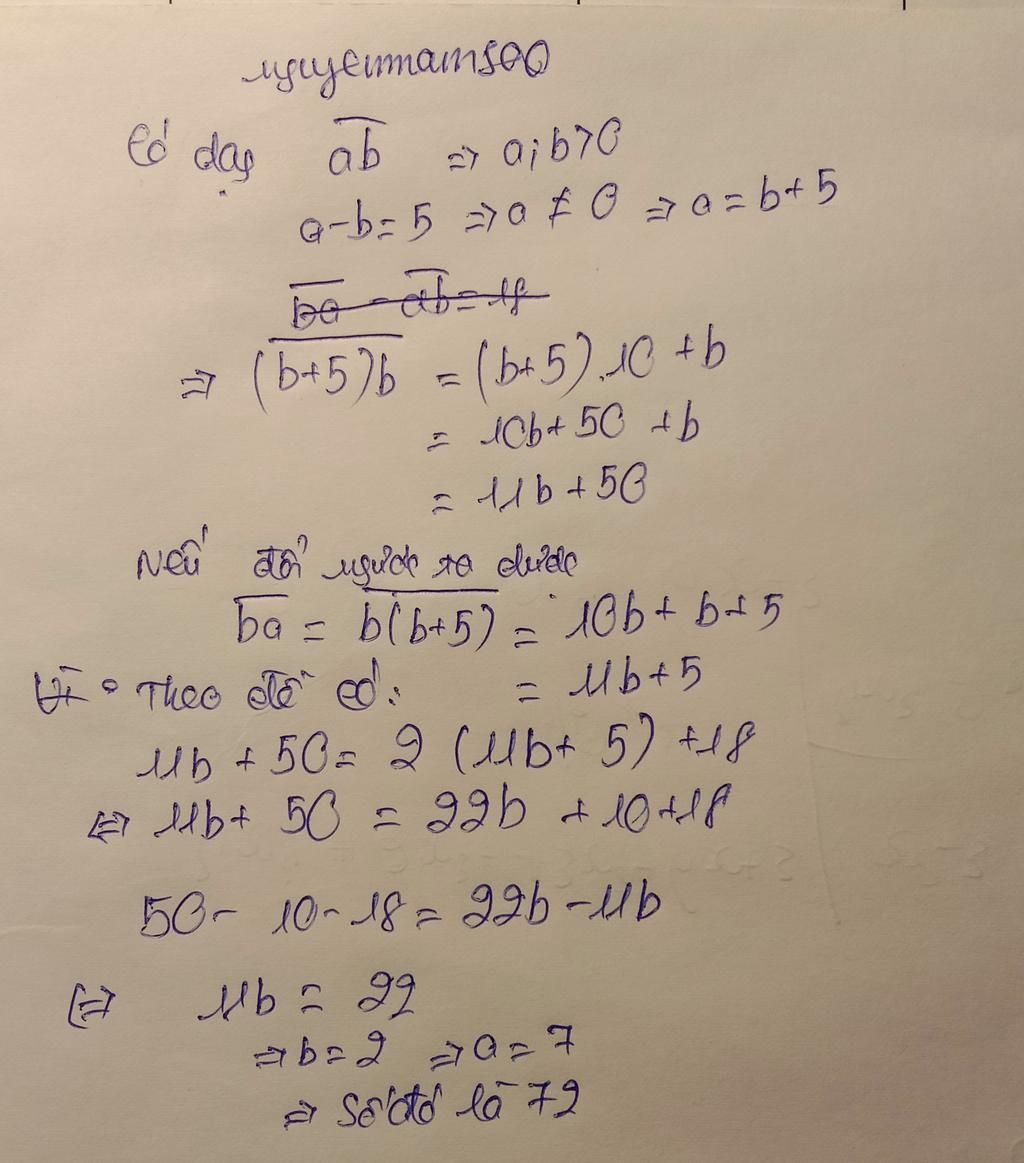 nguyennam500
Có dạg ab̅ => a;b>0
a-b=5 => a ≠ 0 => a=b+5
b̅a̅ - a̅b̅ = 18
=> (b+5)b = (b+5).10 +b
= 10b+50 +b
= 11b+50
Nếu đổi ngược ta được
b̅a̅ = b(b+5) = 10b+ b+5
= 11b+5
Theo đề có:
11b +50= 2 (11b+ 5) +18
<=> 11b+ 50 = 22b +10+18
50- 10-18= 22b-11b
<=> 11b = 22
=> b=2 => a=7
=> Số đó là 72